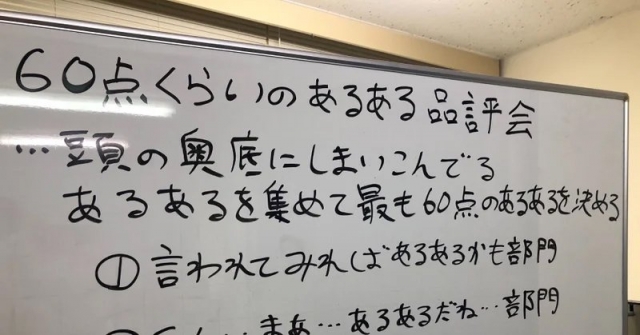 60点くらいのあるある品評会
…頭の奥底にしまいこんでる
あるあるを集めて最も60点のあるあるを決める
①言われてみればあるあるかも部門
まあ…あるあるだね…部門